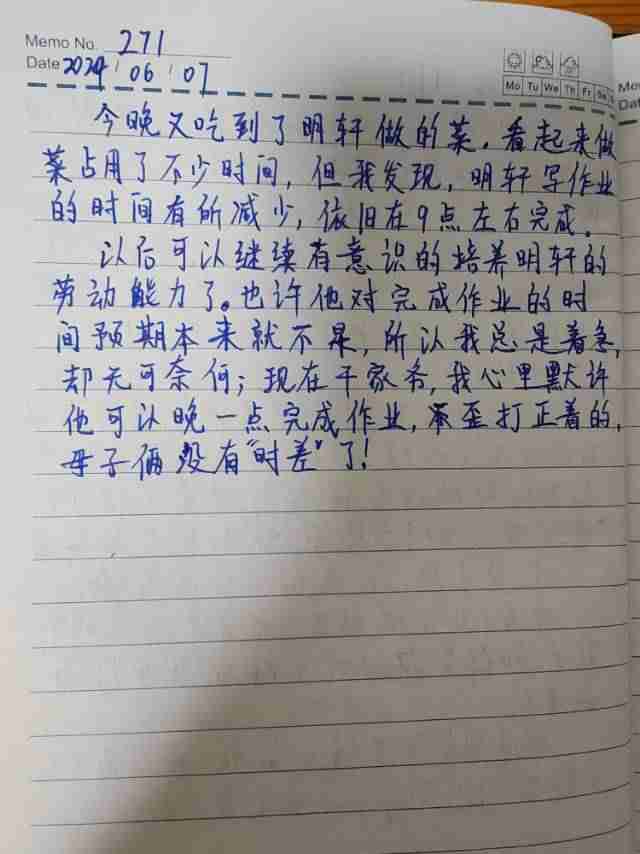 Memo No. 271
Date 2024 / 06 / 07
Mo Tu We Th Fr Sa
今晚又吃到了明轩做的菜，看起来做
菜占用了不少时间，但我发现，明轩写作业
的时间有所减少，依旧在9点左右完成。
以后可以继续有意识的培养明轩的
劳动能力了。也许他对完成作业的时
间预期本来就不是，所以我总是着急，
却无可奈何；现在干家务，我心里默许
他可以晚一点完成作业，歪打正着的，
母子俩没有“时差”了！
Me
Da